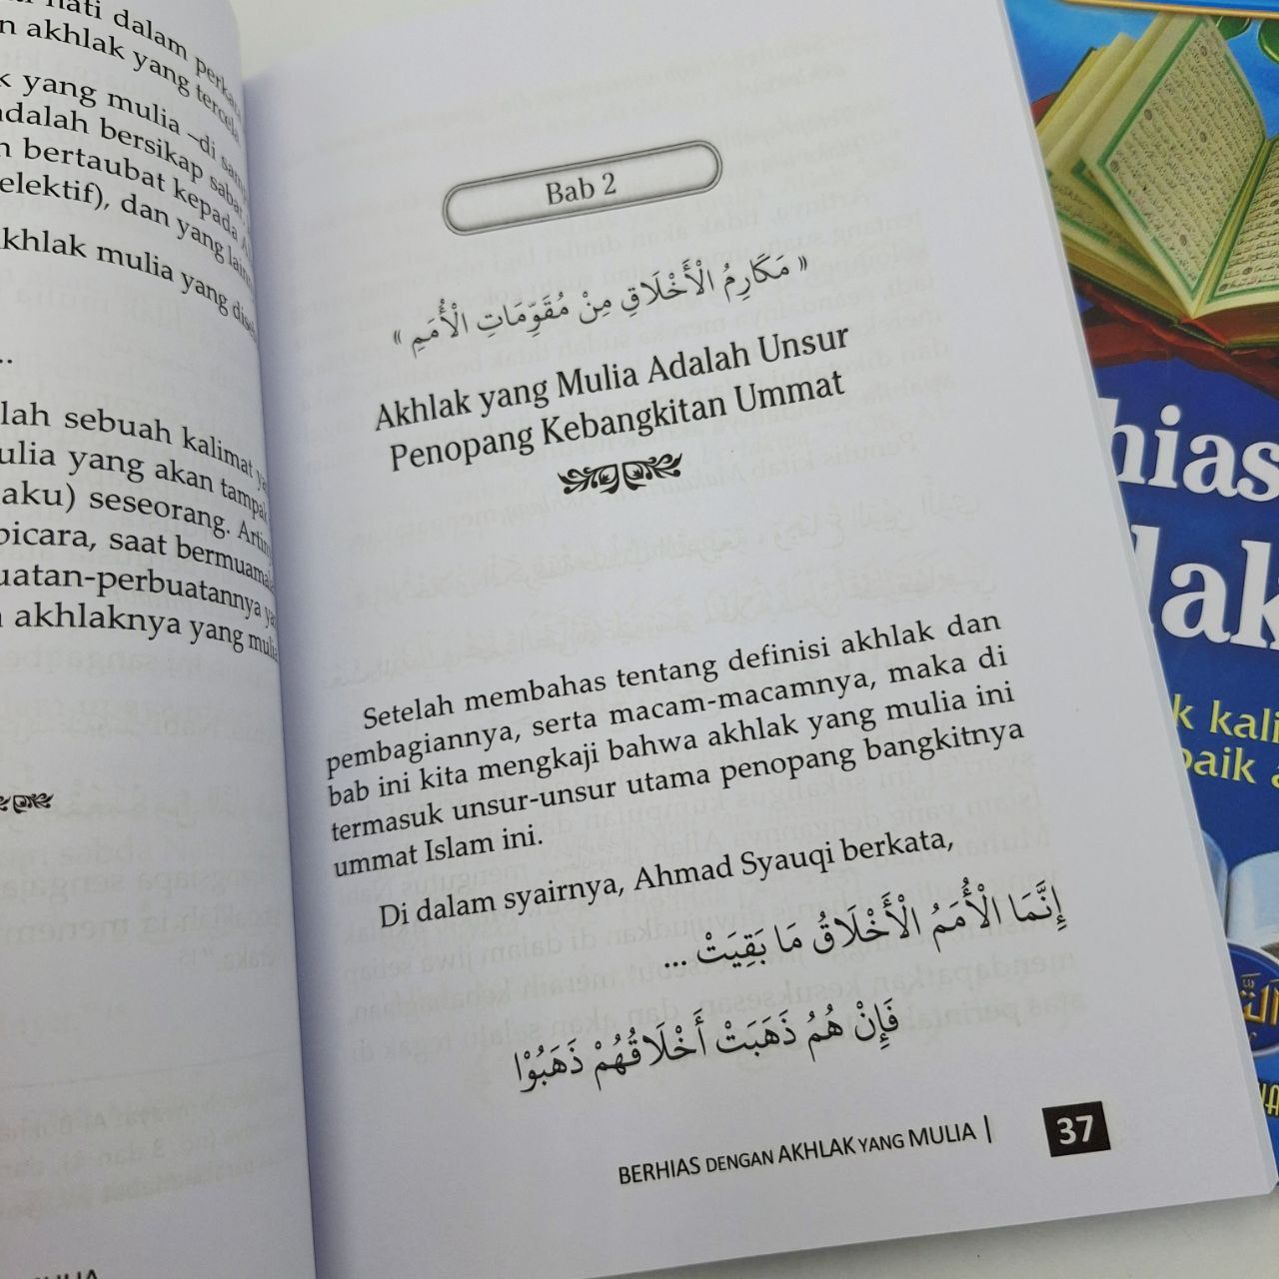 hati dalam
akhlak yang tercela
yang mulia –di
adalah bersikap
bertaubat kepada
dan yang
akhlak mulia yang
sebuah kalimat
yang akan tampak
seseorang.
saat bermuamalah
akhlaknya yang
Bab 2
« مَكَارِمُ الْأَخْلَاقِ مِنْ مُقَوِّمَاتِ الْأُمَمِ »
Akhlak yang Mulia Adalah Unsur
Penopang Kebangkitan Ummat
Setelah membahas tentang definisi akhlak dan
pembagiannya, serta macam-macamnya, maka di
bab ini kita mengkaji bahwa akhlak yang mulia ini
termasuk unsur-unsur utama penopang bangkitnya
ummat Islam ini.
Di dalam syairnya, Ahmad Syauqi berkata,
إِنَّمَا الْأُمَمُ الْأَخْلَاقُ مَا بَقِيَتْ ...
فَإِنْ هُمُ ذَهَبَتْ أَخْلَاقُهُمْ ذَهَبُوْا
BERHIAS DENGAN AKHLAK YANG MULIA | 37